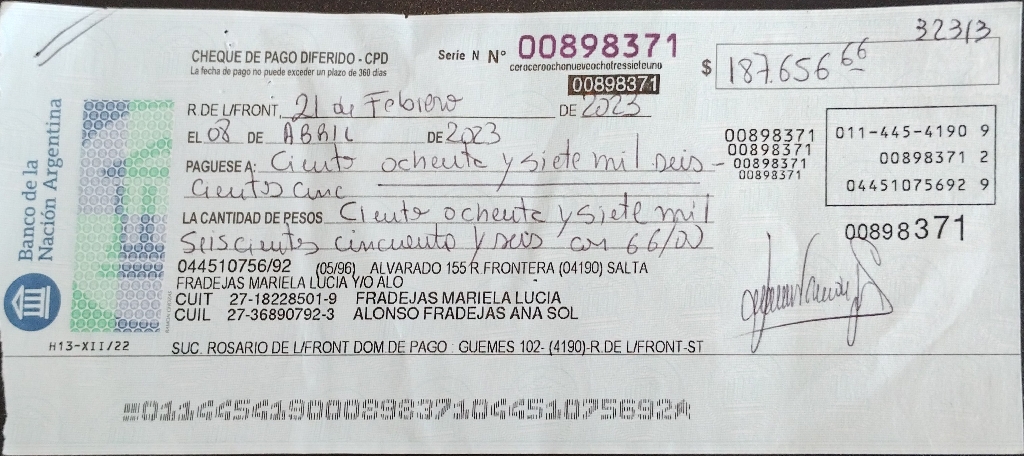 32313
CHEQUE DE PAGO DIFERIDO - CPD
La fecha de pago no puede exceder un plazo de 360 días
Serie N Nº 00898371
ceroceroochonueveochotressieteuno
00898371
$ 187.656 66
R.DE L/FRONT, 21 de Febrero DE 2023
EL 08 DE ABRIL DE 2023
PAGUESE A: Ciento ochenta y siete mil seis-
cientos cinc
LA CANTIDAD DE PESOS Ciento ochenta y siete mil
seiscientos cincuenta y seis con 66/00
00898371
00898371
00898371
00898371
011-445-4190 9
00898371 2
04451075692 9
00898371
044510756/92 (05/96) ALVARADO 155 R FRONTERA (04190) SALTA
FRADEJAS MARIELA LUCIA Y/O ALO
CUIT 27-18228501-9 FRADEJAS MARIELA LUCIA
CUIL 27-36890792-3 ALONSO FRADEJAS ANA SOL
Banco de la
Nación Argentina
H13-XII/22
SUC. ROSARIO DE L/FRONT DOM.DE PAGO : GUEMES 102- (4190)-R.DE L/FRONT-ST
01144541900089837104451075692